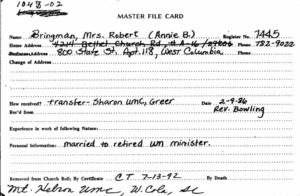 1048-02
MASTER FILE CARD
Name Bringman, Mrs. Robert (Annie B.) Register No. 7445
Home Address 4214 Bethel Church Rd, #A-16/29206 Phone 782-9022
Business Address 800 State St. Apt. 118, West Columbia Phone
Change of Address
How received? transfer-Sharon UMC, Greer Date 2-9-86
Rec'd from Rev. Bowling
Experience in work of following Nature:
Personal Information: married to retired UM minister.
Removed from Church Roll; By Certificate CT 7-13-92 By Death
Mt. Hebron UMC, W. Cola, SC